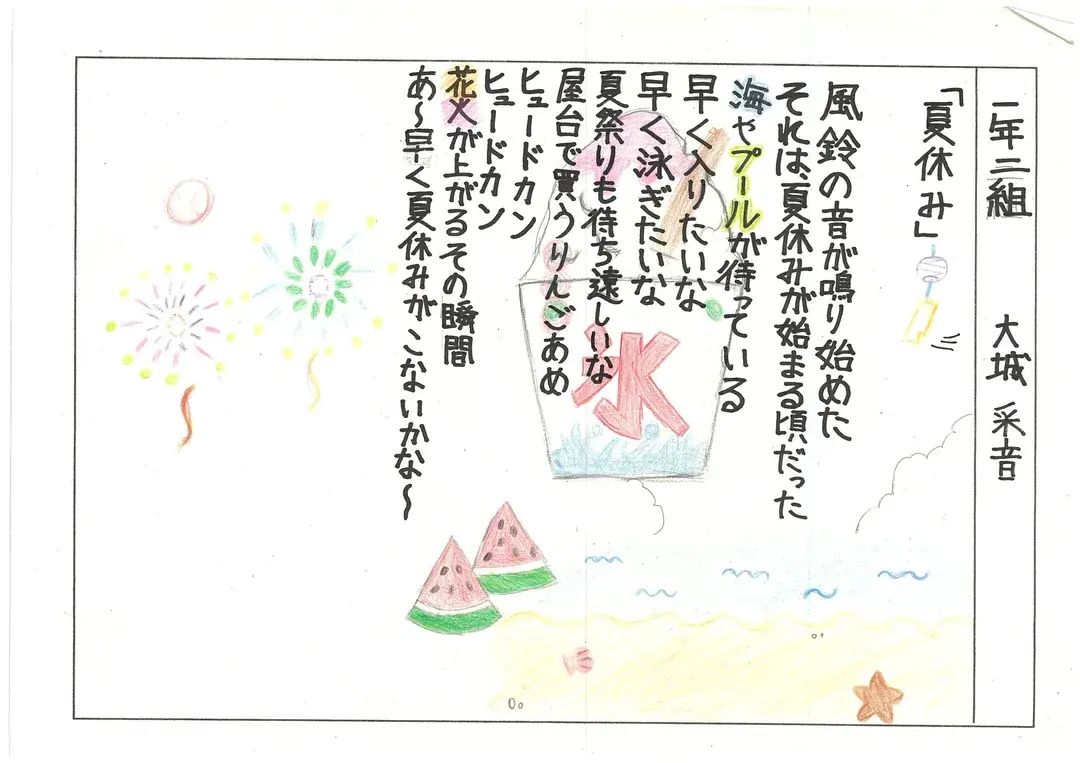 二年二組 大城 采音
「夏休み」
風鈴の音が鳴り始めた
それは、夏休みが始まる頃だった
海やプールが待っている
早く入りたいな
早く泳ぎたいな
夏祭りも待ち遠しいな
屋台で買うりんごあめ
ヒュードカン
ヒュードカン
花火が上がるその瞬間
あ～早く夏休みがこないかな～
氷